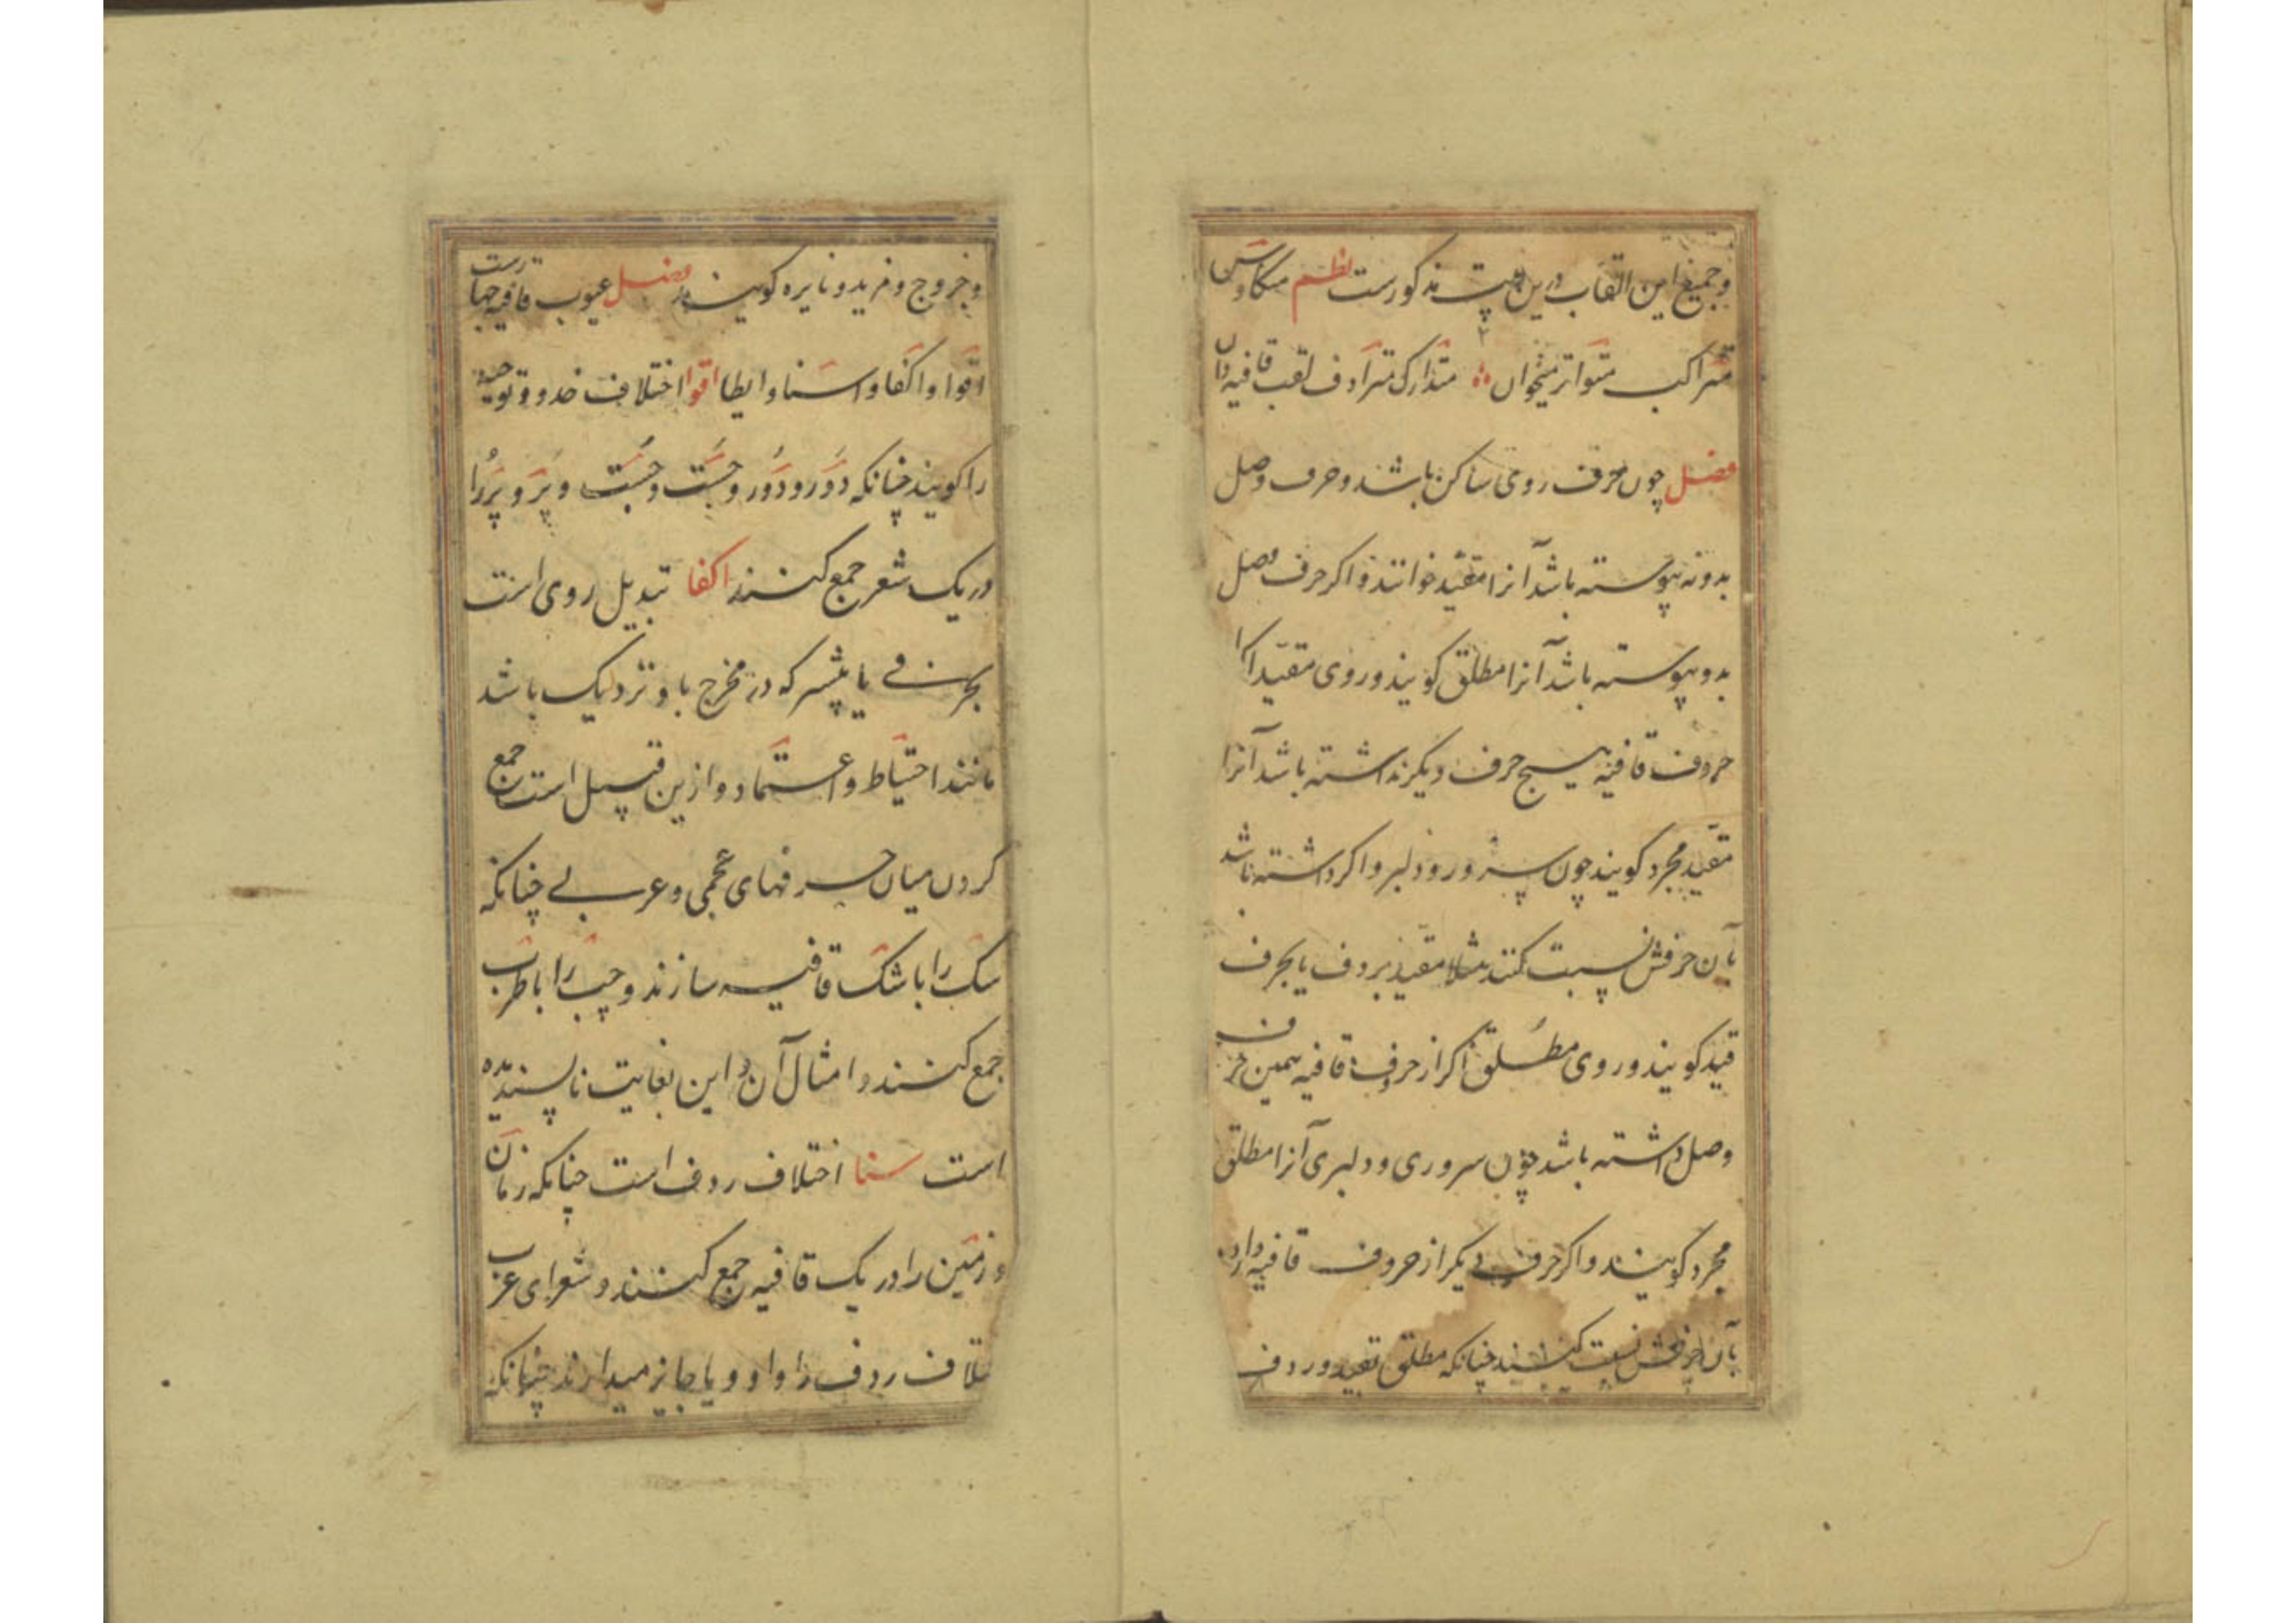 وجمیع این القاب درین بیت مذکورست نظم متکاوس
متراکب متواتر میخوان متدارک مترادف لقب قافیه دان
فصل چون حرف روی ساکن باشد و حرف وصل
بدو نه پیوسته باشد آنرا مقید خوانند و اکر حرف وصل
بدو پیوسته باشد آنرا مطلق کویند و روی مقید اکر از
حروف قافیه هیچ حرف دیکر نداشته باشد آنرا
مقید مجرد کویند چون سرور و دلبر و اکر داشته باشد
بآن حرفش نسبت کنند مثلا مقید بردف یا بحرف
قید کویند و روی مطلق اکر از حروف قافیه همین حرف
وصل داشته باشد چون سروری و دلبری آنرا مطلق
مجرد کویند و اکر حرف دیکر از حروف قافیه دارد
بآن حرفش نسبت کنند چنانکه مطلق بقید و ردف
و خروج و مزید و نایره کویند فصل عیوب قافیه چهارست
اقوا و اکفا و سنا و ایطا اقوا اختلاف حذو و توجیه
را کویند چنانکه دَور و دُور و جَست و جُست و پَر و پُر را
در یک شعر جمع کنند اکفا تبدیل روی است
بحرفی یا بیشتر که در مخرج باو نزدیک باشد
مانند احتیاط و اعتماد و ازین قبیل است جمع
کردن میان حرفهای عجمی و عربی چنانکه
سک را با شک قافیه سازند و چپ را با طرب
جمع کنند و امثال آن و این بغایت ناپسندیده
است سنا اختلاف ردف است چنانکه زمان
و زمین را در یک قافیه جمع کنند و شعرای عرب
ختلاف ردف را واو و یا جایز میدارند چنانکه